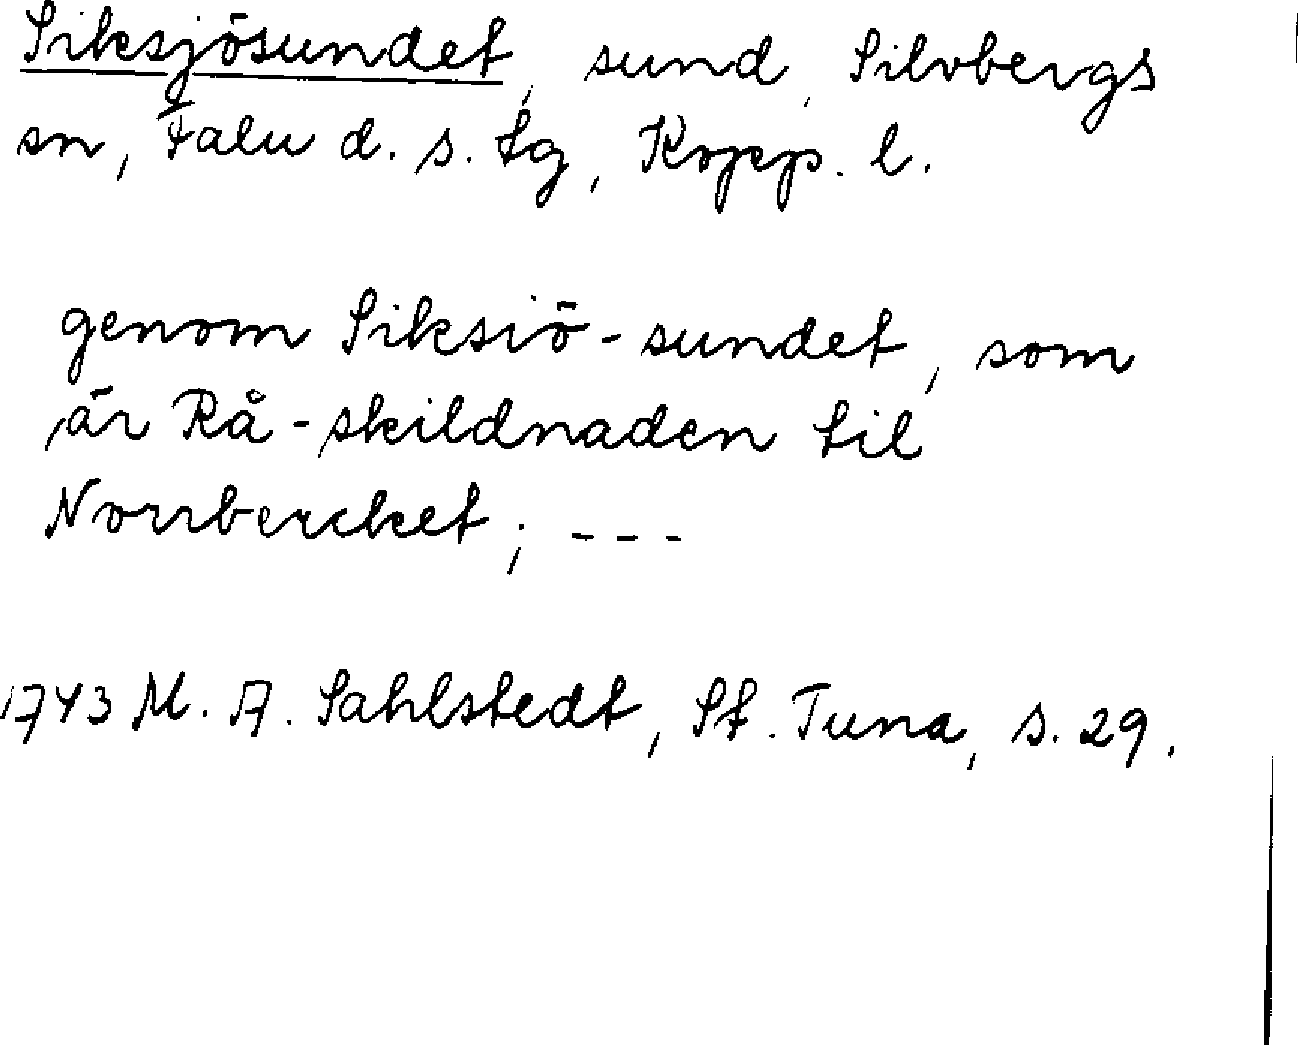 Siksjösundet, sund, Silvbergs
sn, Falu d. s. tg, Kopp. l.
genom Siksiö-sundet, som
är Rå-skildnaden til
Norrbercket; ---
1743 M. A. Sahlstedt, St. Tuna, s. 29.